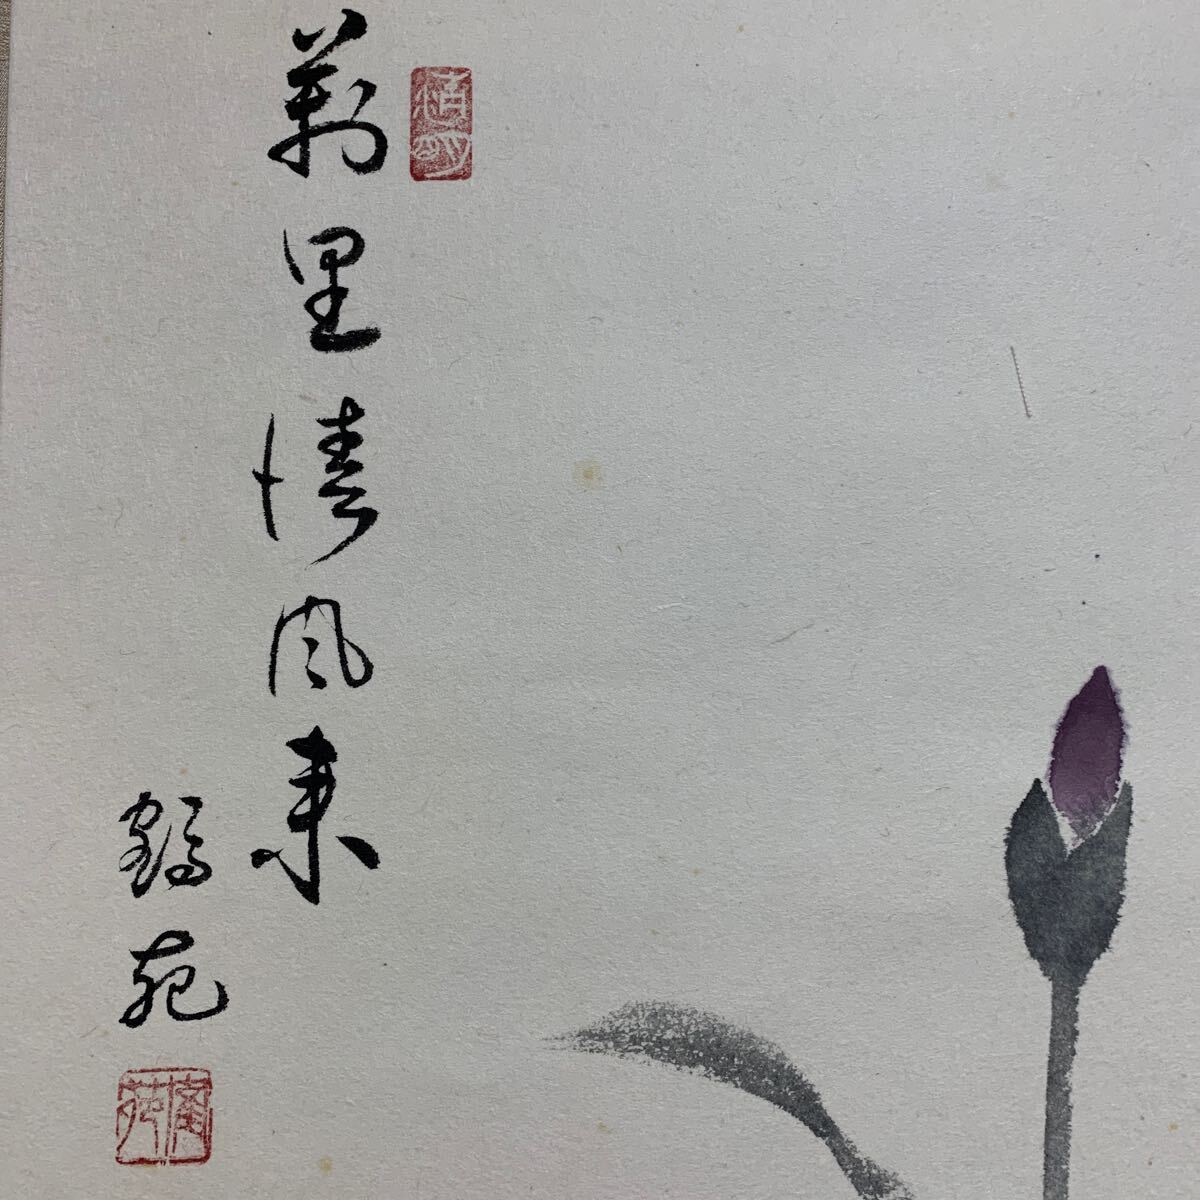 萬里清風来
鶴苑